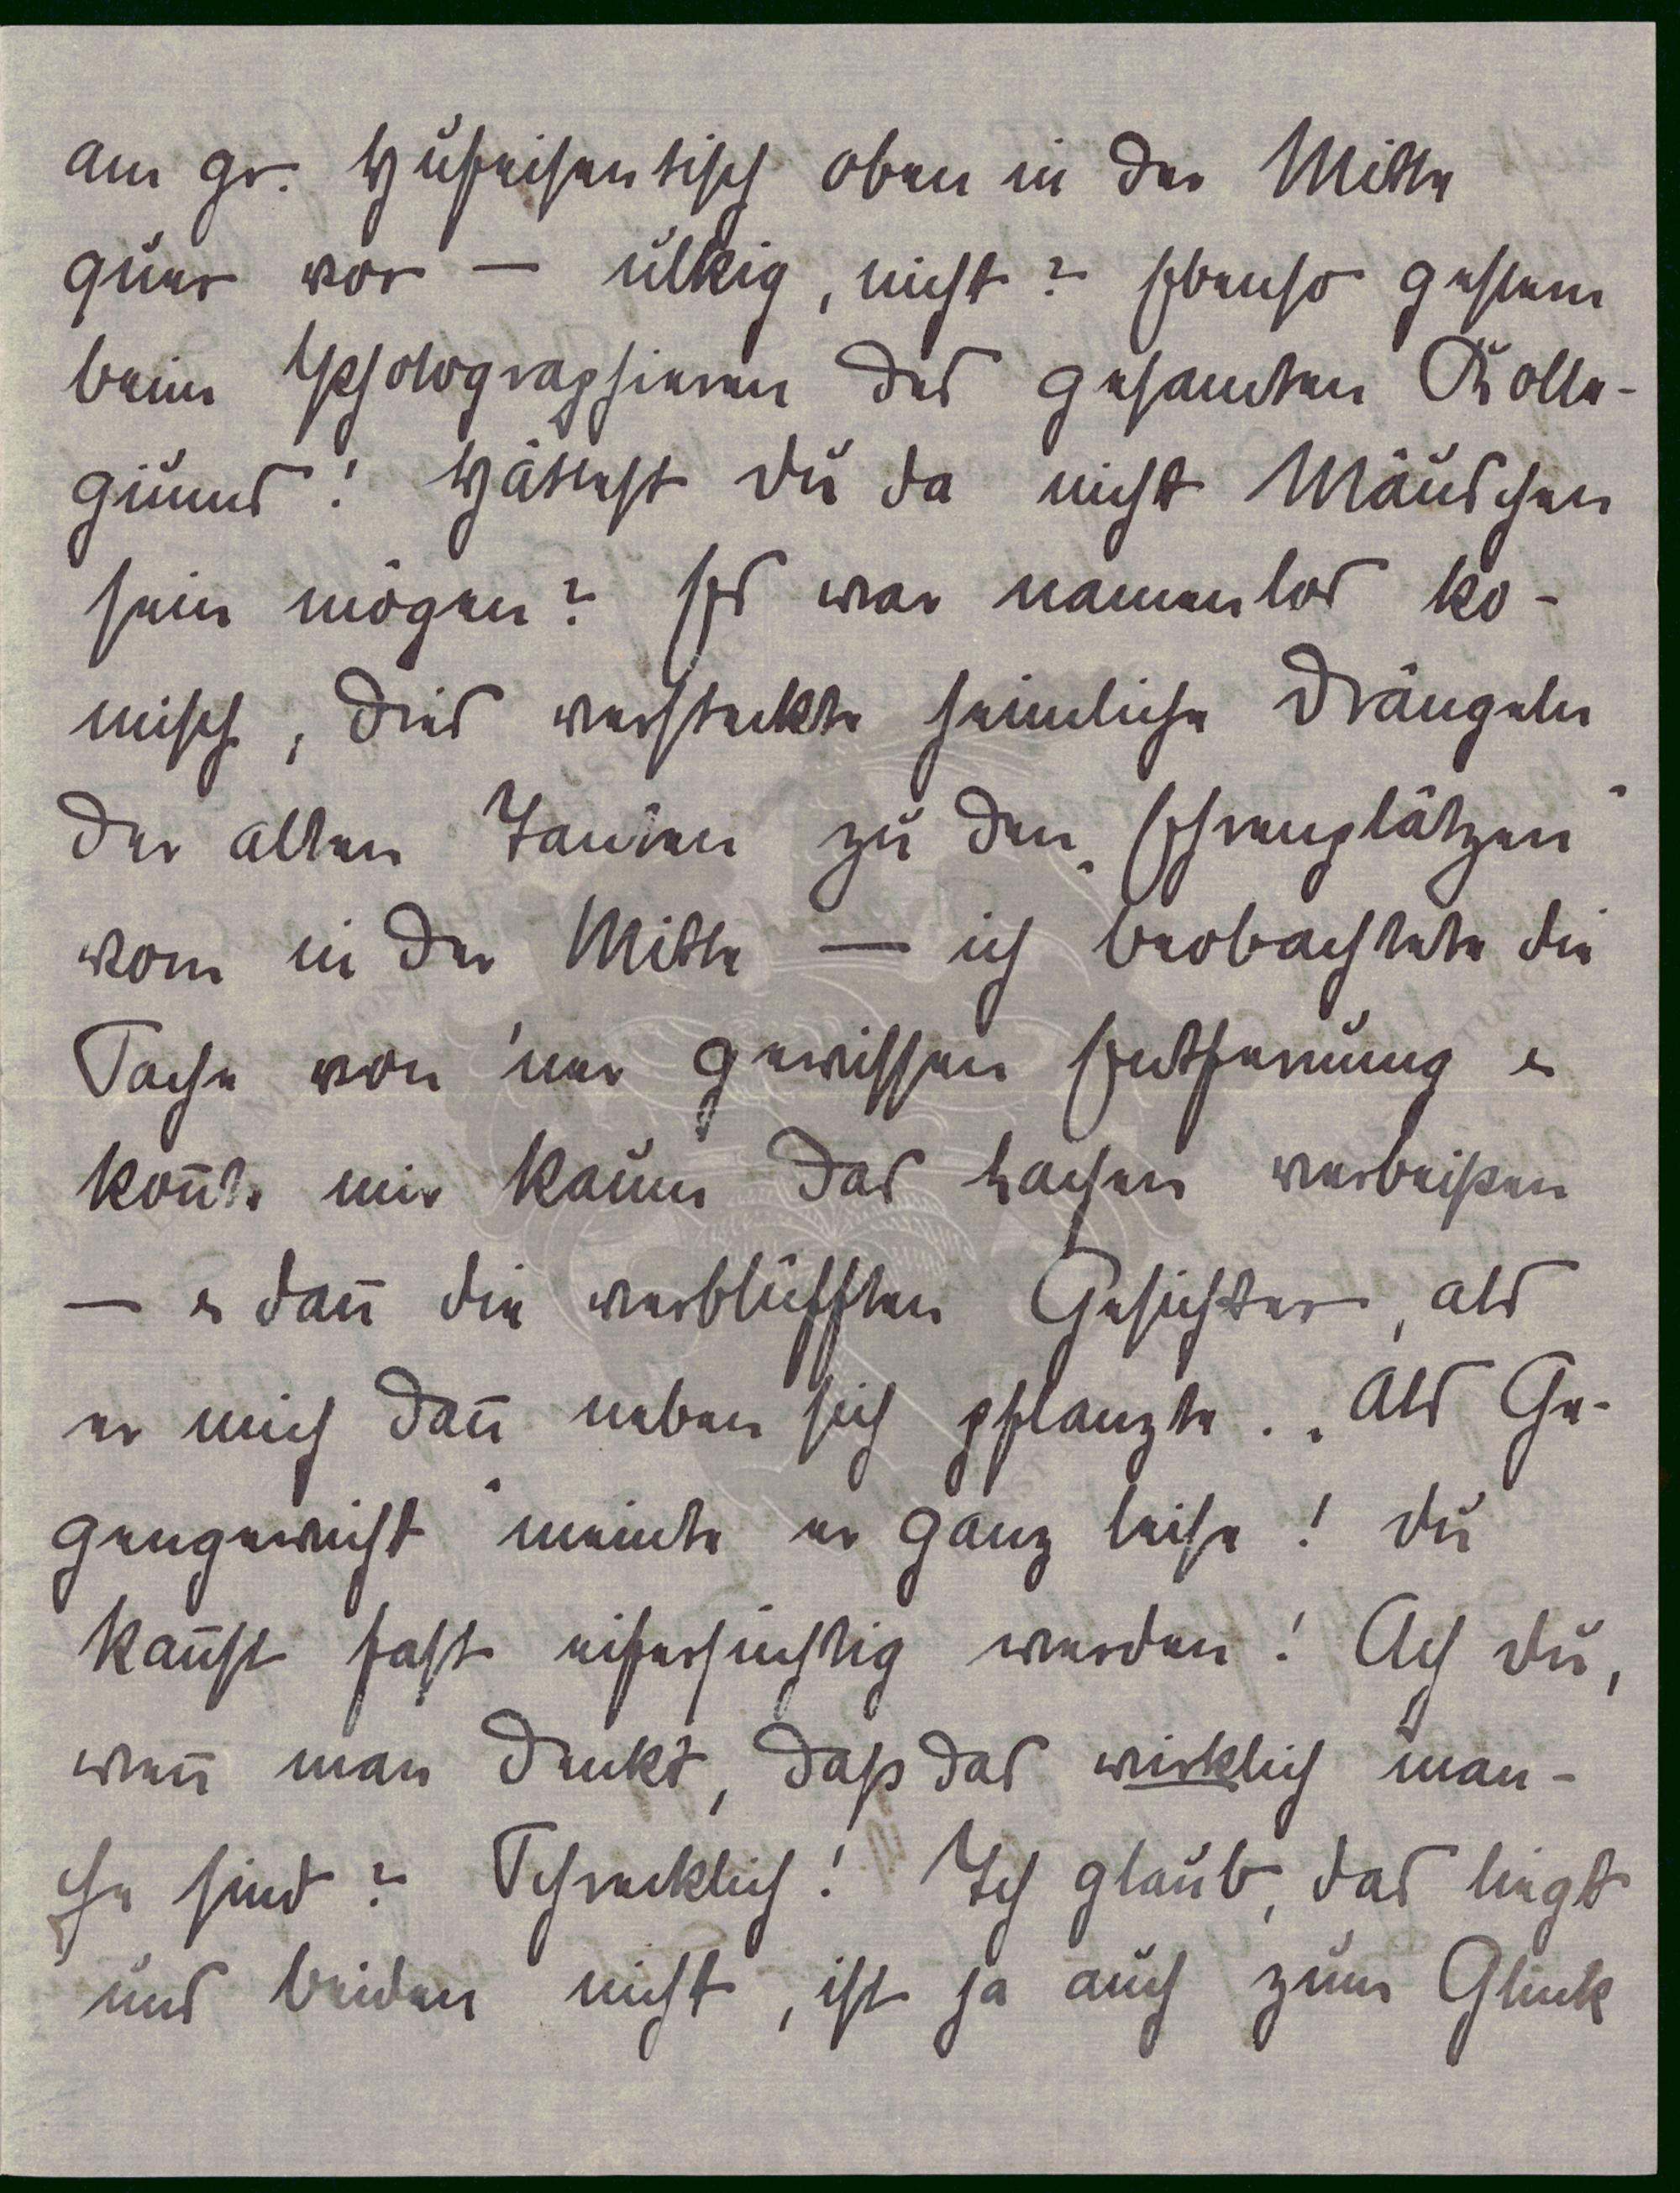 am gr. Hufeisentisch oben in der Mitte
quer vor — ulkig, nicht? Ebenso gestern
beim Photographieren des gesamten Kolle-
giums! Hättest Du da nicht Mäuschen
sein mögen? Es war namenlos ko-
misch, dies versteckte heimliche Drängeln
der alten Tanten zu den „Ehrenplätzen“
vorn in der Mitte — ich beobachtete die
Sache von 'ner gewissen Entfernung u
kon̄te mir kaum das Lachen verbeißen
— u dan̄ die verblüfften Gesichter, als
er mich dan̄ neben sich pflanzte. „Als Ge-
gengewicht“ meinte er ganz leise! Du
kan̄st fast eifersüchtig werden! Ach Du,
wen̄ man denkt, daß das wirklich man-
che sind? Schrecklich! Ich glaub, das liegt
uns beiden nicht, ist ja auch zum Glück